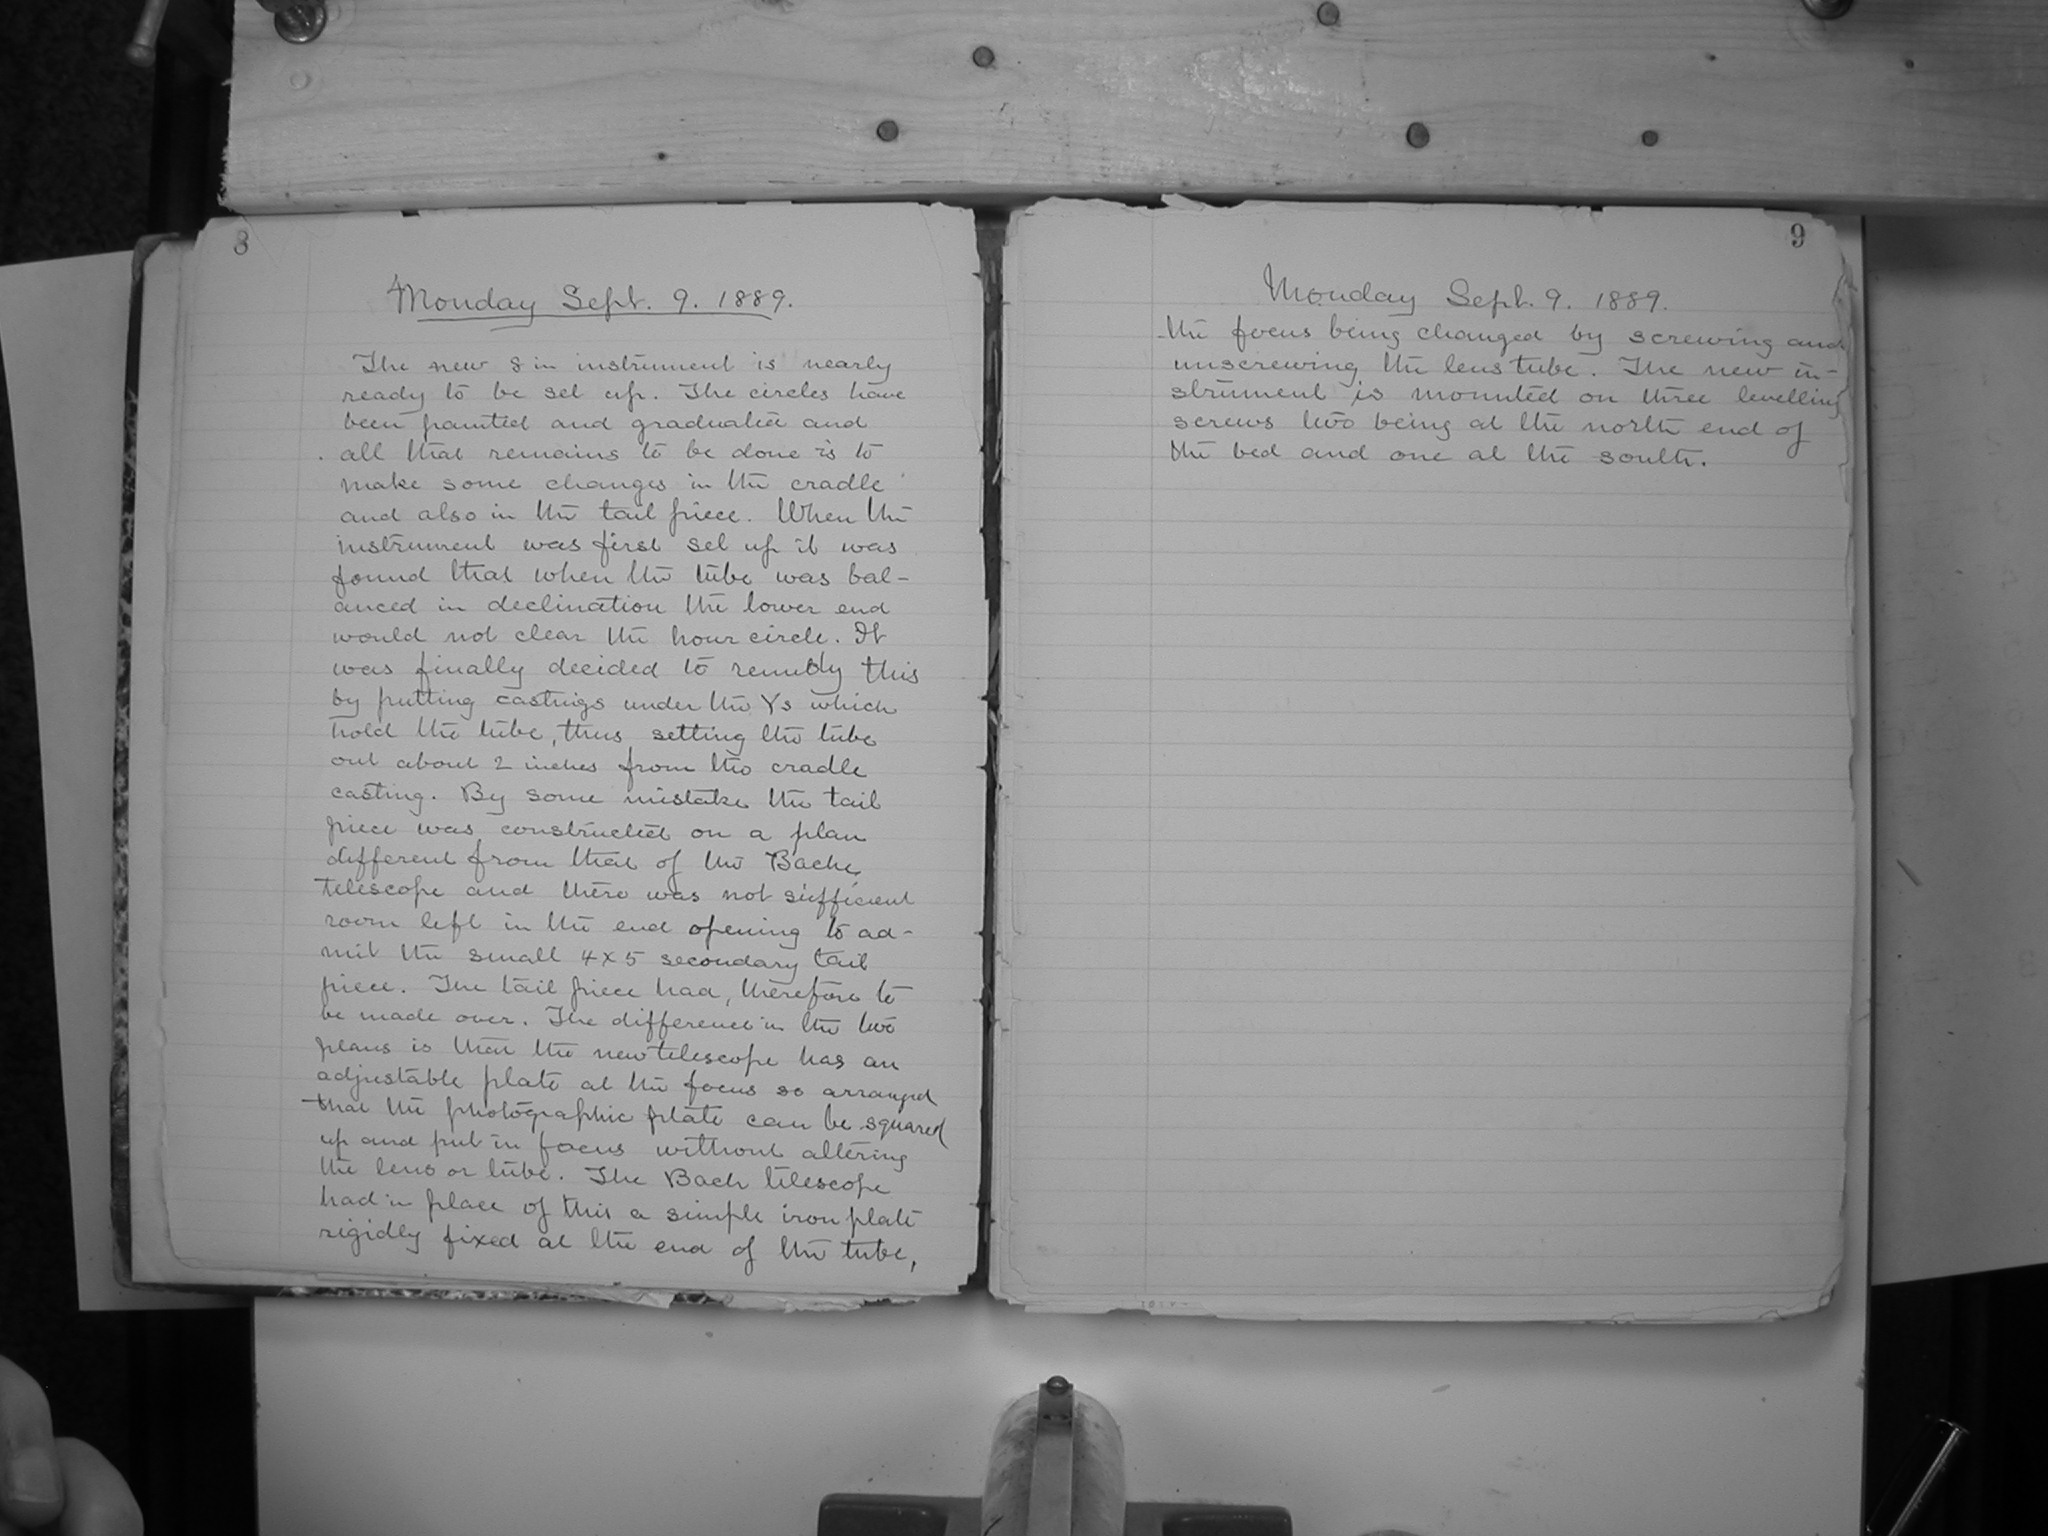 8
Monday Sept. 9. 1889.
The new 8 in instrument is nearly
ready to be set up. The circles have
been painted and graduated and
all that remains to be done is to
make some changes in the cradle
and also in the tail piece. When the
instrument was first set up it was
found that when the tube was bal-
anced in declination the lower end
would not clear the hour circle. It
was finally decided to remedy this
by putting castings under the Ys which
hold the tube, thus setting the tube
out about 2 inches from the cradle
casting. By some mistake the tail
piece was constructed on a plan
different from that of the Bache
telescope and there was not sufficient
room left in the end opening to ad-
mit the small 4x5 secondary tail
piece. The tail piece had, therefore to
be made over. The difference in the two
plans is that the new telescope has an
adjustable plate at the focus so arranged
that the photographic plate can be squared
up and put in focus without altering
the lens or tube. The Bach telescope
had in place of this a simple iron plate
rigidly fixed at the end of the tube,
9
Monday Sept. 9. 1889.
the focus being changed by screwing and
unscrewing the lens tube. The new in-
strument is mounted on three levelling
screws two being at the north end of
the bed and one at the south.